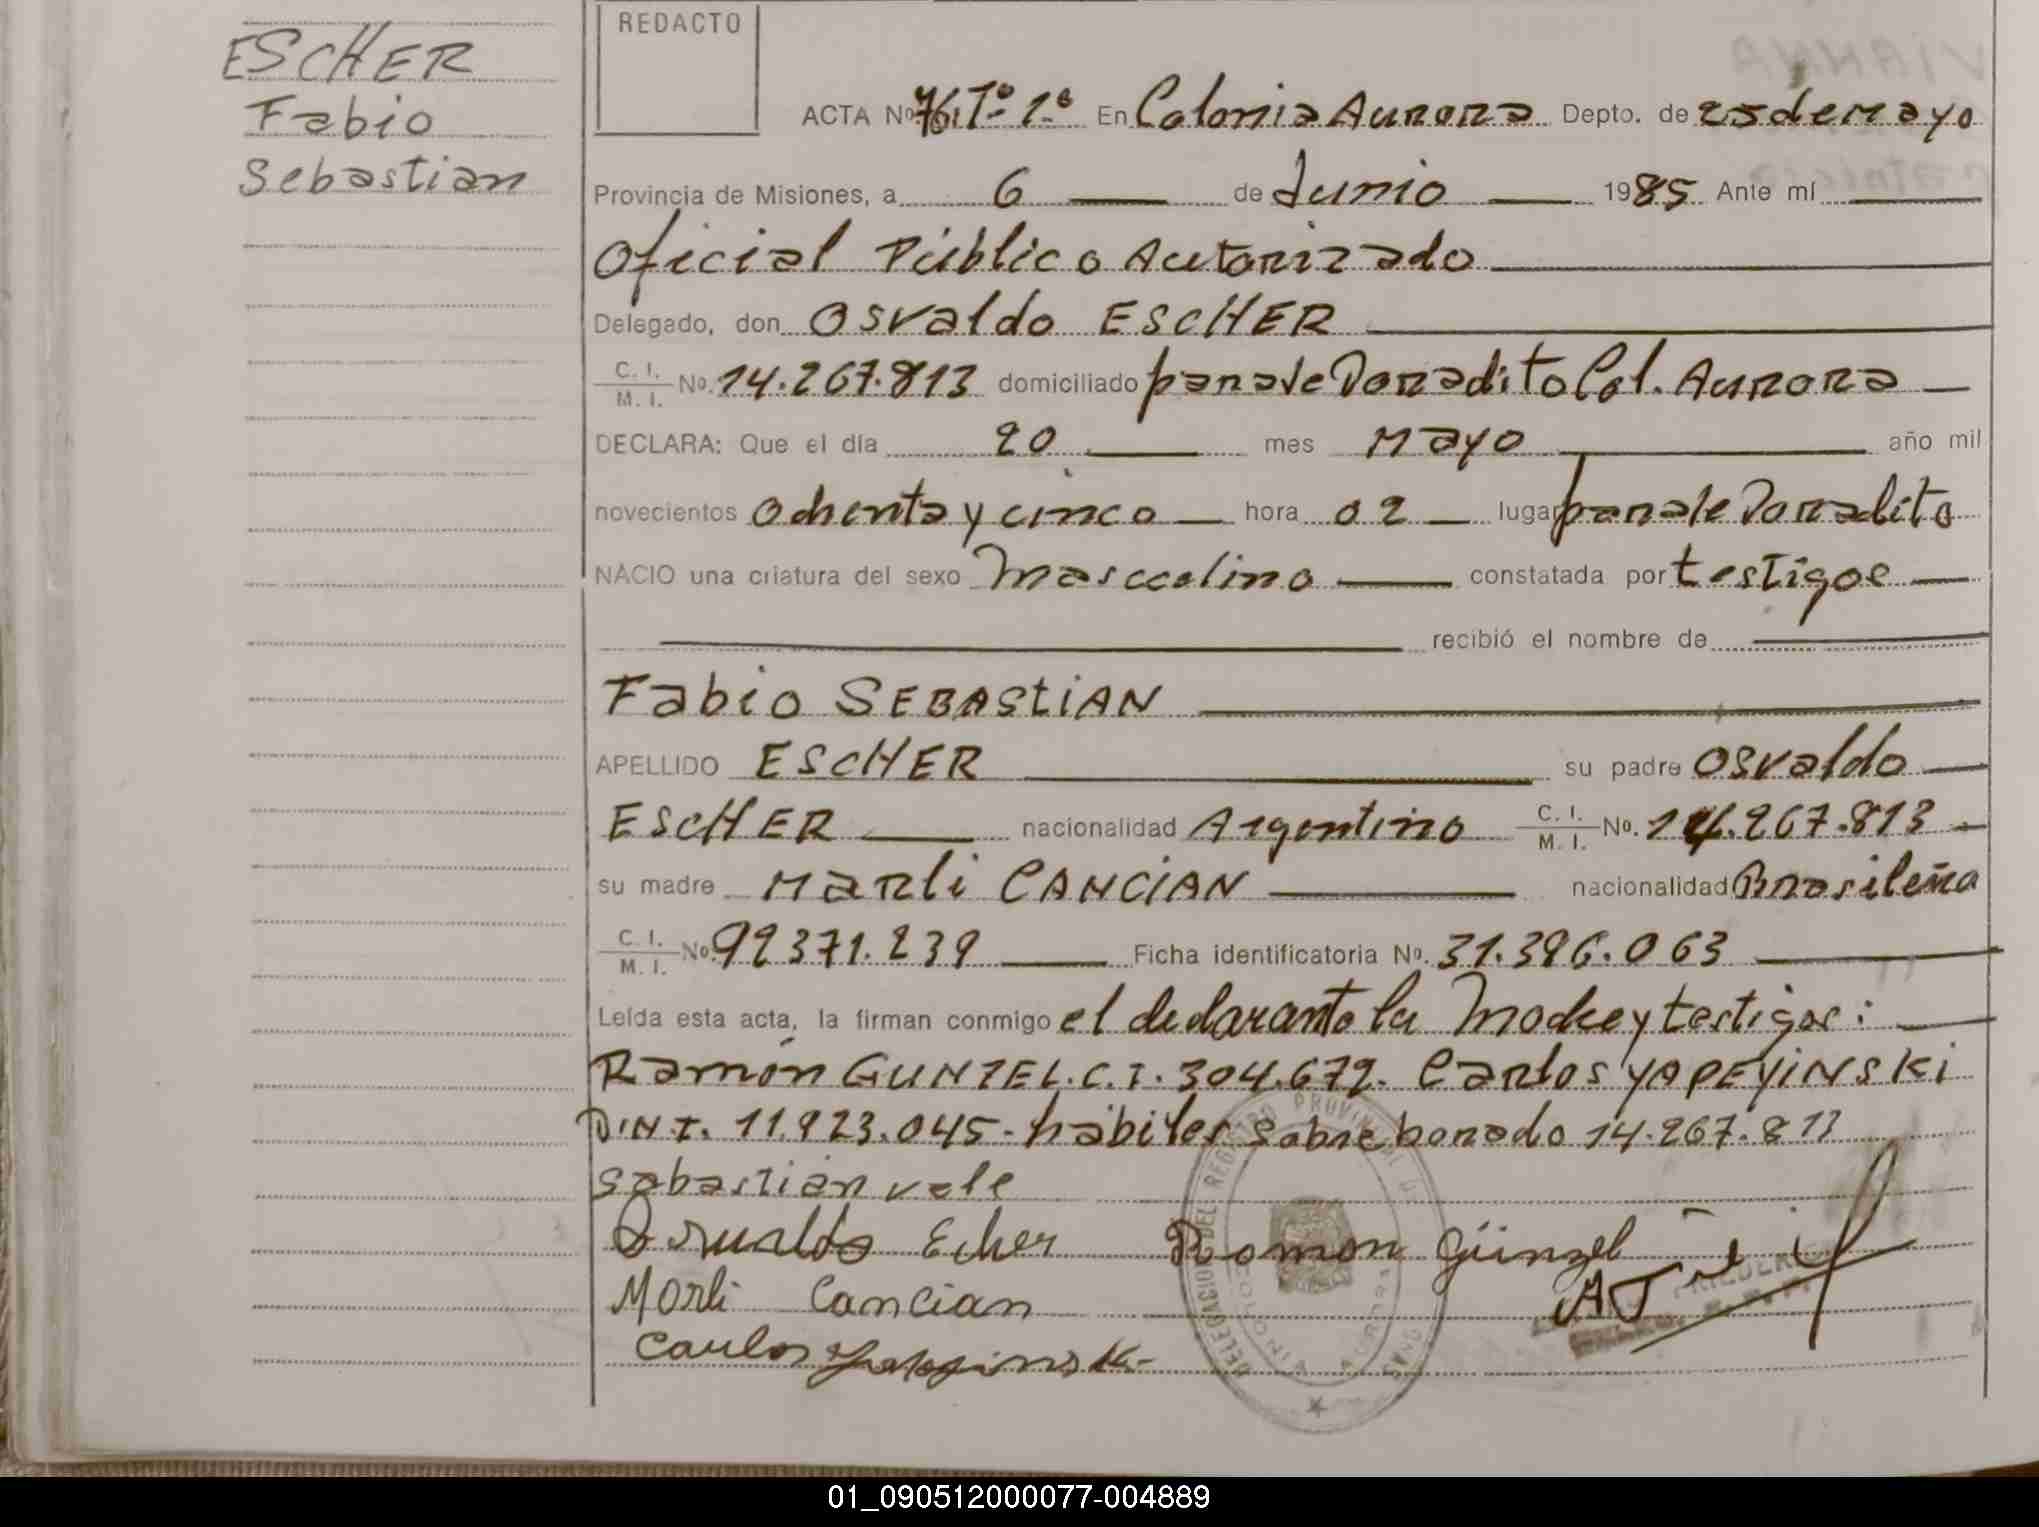 ESCHER
Fabio
Sebastian
REDACTO
ACTA Nº 76, Tº 1º En Colonia Aurora Depto. de 25 de Mayo
Provincia de Misiones, a 6 de Junio 1985 Ante mí
Oficial Público Autorizado
Delegado, don Osvaldo ESCHER
C. I. / M. I. Nº. 14.267.813 domiciliado Doradito Col. Aurora
DECLARA: Que el día 20 mes Mayo año mil
novecientos ochenta y cinco hora 02 lugar Doradito
NACIO una criatura del sexo Masculino constatada por testigos
recibió el nombre de
Fabio SEBAStiAN
APELLIDO ESCHER su padre Osvaldo
ESCHER nacionalidad Argentino C. I. / M. I. Nº. 14.267.813
su madre Marli CANCIAN nacionalidad Brasileña
C. I. / M. I. Nº. 92371.239 Ficha identificatoria Nº. 31.396.063
Leída esta acta, la firman conmigo el declarante la Madre y testigos:
Ramón GUNZEL. C.I. 304.672. Carlos YAPEYiNSKi
D.N.I. 11.923.045 - hábiles sobre borrado 14.267.813
Sebastián vale
Osvaldo Echer Ramon Günzel
Marli Cancian
Carlos
DELEGACION DEL REGISTRO PROVINCIAL DE
01_090512000077-004889